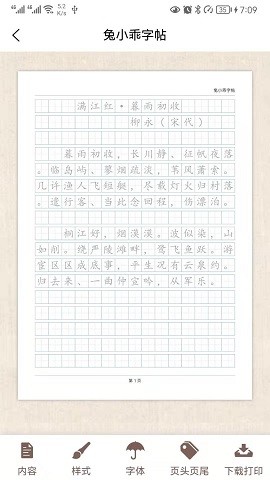 5.2 K/s 35 7:09
兔小乖字帖
兔小乖字帖
满江红·暮雨初收
柳永（宋代）
暮雨初收，长川静、征帆夜落
。临岛屿、蓼烟疏淡，苇风萧索。
几许渔人飞短艇，尽载灯火归村落
。遣行客、当此念回程，伤漂泊。
桐江好，烟漠漠。波似染，山
如削。绕严陵滩畔，鹭飞鱼跃。游
宦区区成底事，平生况有云泉约。
归去来、一曲仲宣吟，从军乐。
第1页
内容 样式 字体 页头页尾 下载打印